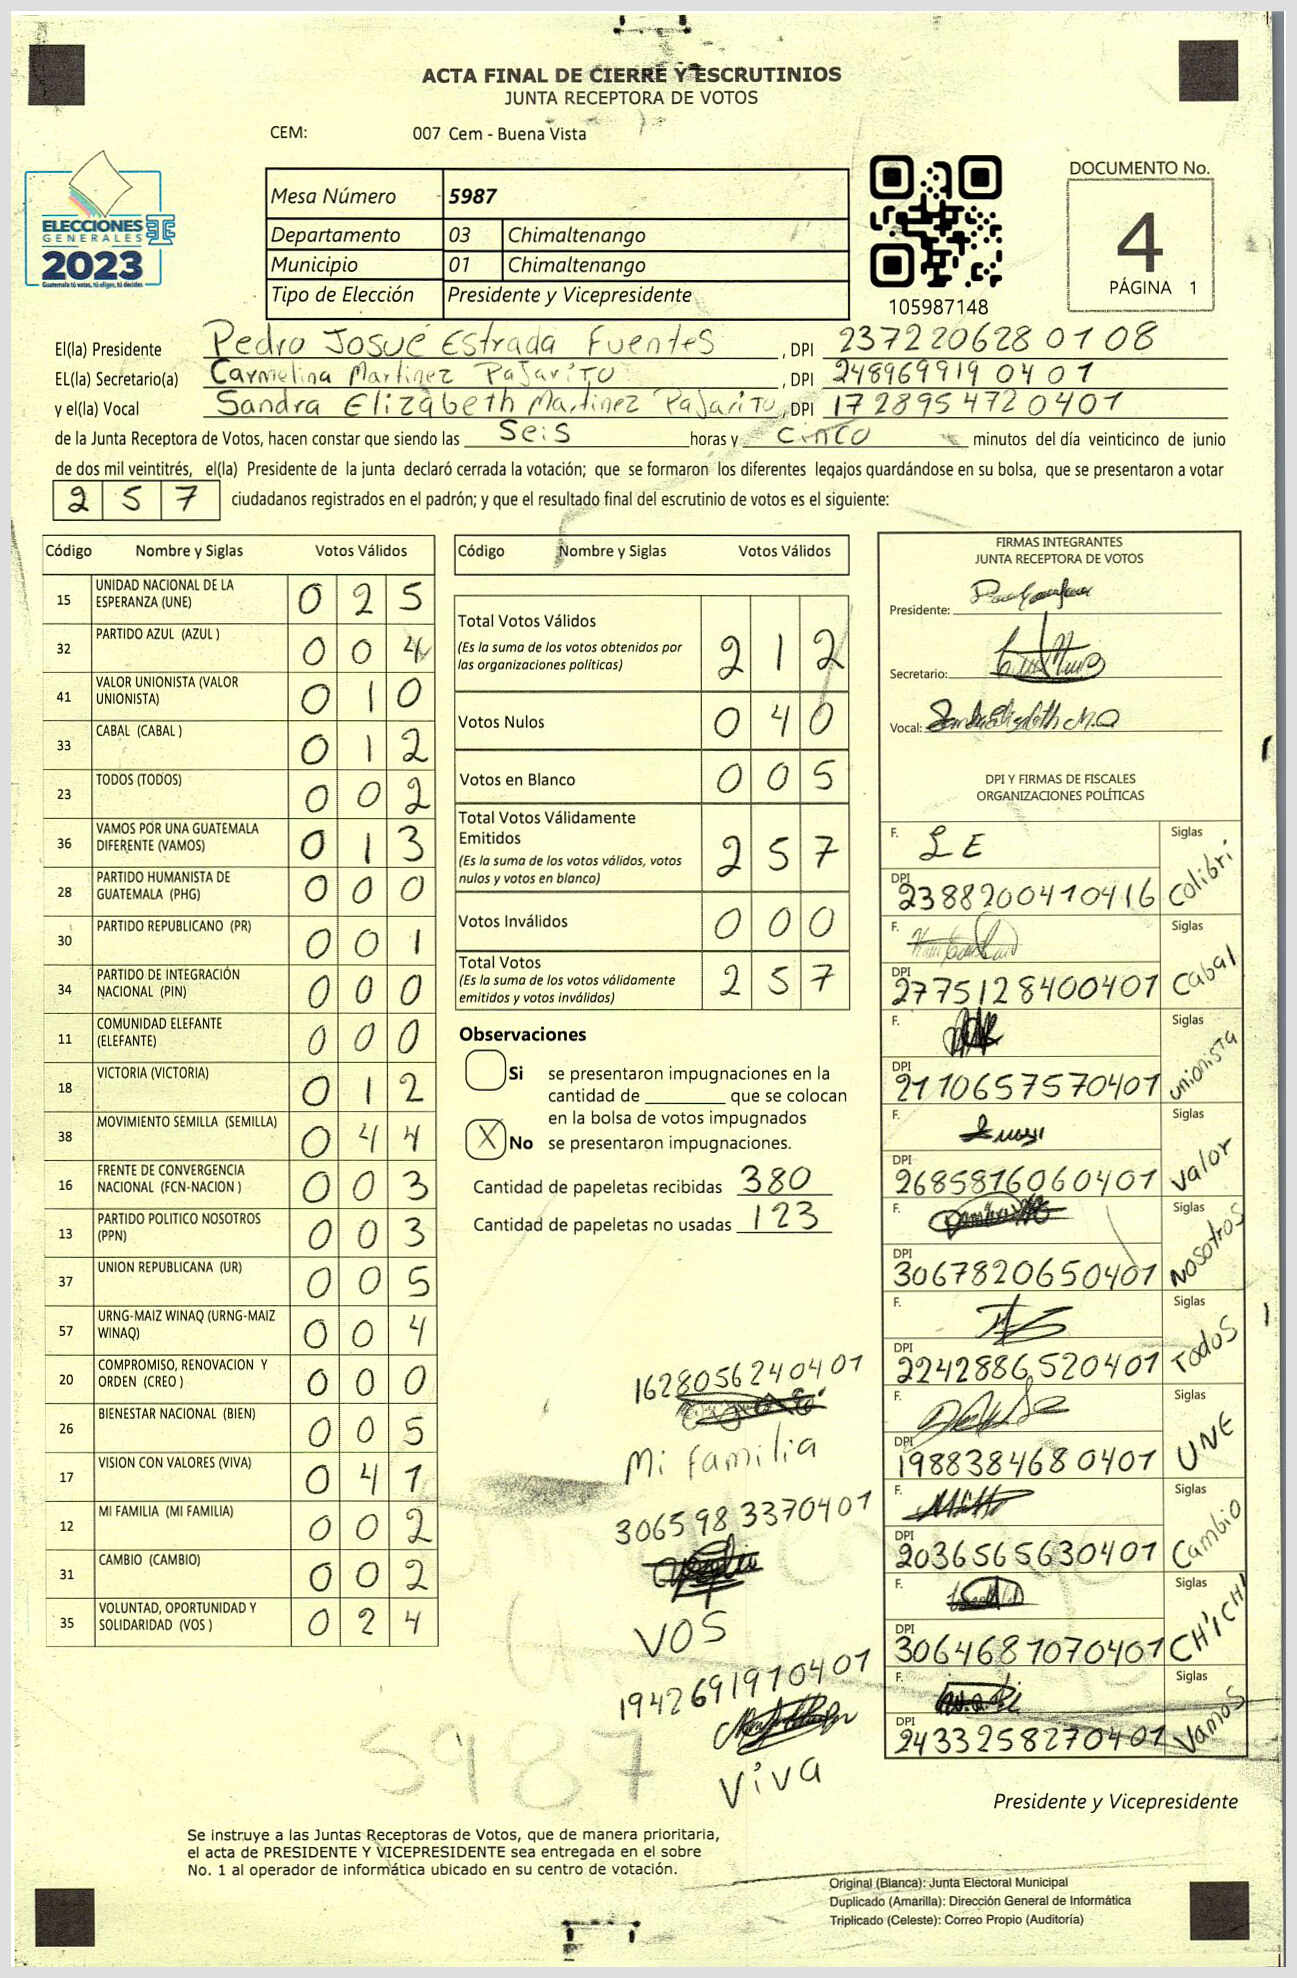 ACTA FINAL DE CIERRE Y ESCRUTINIOS
JUNTA RECEPTORA DE VOTOS
CEM: 007 Cem - Buena Vista
ELECCIONES
GENERALES
2023
Guatemala tú votas, tú eliges, tú decides
Mesa Número 5987
Departamento 03 Chimaltenango
Municipio 01 Chimaltenango
Tipo de Elección Presidente y Vicepresidente
105987148
DOCUMENTO No.
4
PÁGINA 1
El(la) Presidente Pedro Josué Estrada Fuentes, DPI 2372206280108
EL(la) Secretario(a) Carmelina Martinez Pajarito, DPI 2489699190401
y el(la) Vocal Sandra Elizabeth Martinez Pajarito, DPI 1728954720401
de la Junta Receptora de Votos, hacen constar que siendo las Seis horas y cinco minutos del día veinticinco de junio
de dos mil veintitrés, el(la) Presidente de la junta declaró cerrada la votación; que se formaron los diferentes legajos guardándose en su bolsa, que se presentaron a votar
257 ciudadanos registrados en el padrón; y que el resultado final del escrutinio de votos es el siguiente:
Código Nombre y Siglas Votos Válidos
15 UNIDAD NACIONAL DE LA ESPERANZA (UNE) 025
32 PARTIDO AZUL (AZUL ) 004
41 VALOR UNIONISTA (VALOR UNIONISTA) 010
33 CABAL (CABAL ) 012
23 TODOS (TODOS) 002
36 VAMOS POR UNA GUATEMALA DIFERENTE (VAMOS) 013
28 PARTIDO HUMANISTA DE GUATEMALA (PHG) 000
30 PARTIDO REPUBLICANO (PR) 001
34 PARTIDO DE INTEGRACIÓN NACIONAL (PIN) 000
11 COMUNIDAD ELEFANTE (ELEFANTE) 000
18 VICTORIA (VICTORIA) 012
38 MOVIMIENTO SEMILLA (SEMILLA) 044
16 FRENTE DE CONVERGENCIA NACIONAL (FCN-NACION ) 003
13 PARTIDO POLITICO NOSOTROS (PPN) 003
37 UNION REPUBLICANA (UR) 005
57 URNG-MAIZ WINAQ (URNG-MAIZ WINAQ) 004
20 COMPROMISO, RENOVACION Y ORDEN (CREO ) 000
26 BIENESTAR NACIONAL (BIEN) 005
17 VISION CON VALORES (VIVA) 041
12 MI FAMILIA (MI FAMILIA) 002
31 CAMBIO (CAMBIO) 002
35 VOLUNTAD, OPORTUNIDAD Y SOLIDARIDAD (VOS ) 024
Código Nombre y Siglas Votos Válidos
Total Votos Válidos 212
(Es la suma de los votos obtenidos por
las organizaciones políticas)
Votos Nulos 040
Votos en Blanco 005
Total Votos Válidamente
Emitidos 257
(Es la suma de los votos válidos, votos
nulos y votos en blanco)
Votos Inválidos 000
Total Votos 257
(Es la suma de los votos válidamente
emitidos y votos inválidos)
Observaciones
Si se presentaron impugnaciones en la
cantidad de ________ que se colocan
en la bolsa de votos impugnados
X No se presentaron impugnaciones.
Cantidad de papeletas recibidas 380
Cantidad de papeletas no usadas 123
1628056240401
Mi familia
3065983370401
VOS
1942691970401
Viva
5987
FIRMAS INTEGRANTES
JUNTA RECEPTORA DE VOTOS
Presidente:
Secretario:
Vocal:
DPI Y FIRMAS DE FISCALES
ORGANIZACIONES POLÍTICAS
F. LE Siglas
DPI 2388200410416 Colibri
F. Siglas
DPI 2775128400401 Cabal
F. Siglas
DPI 2110657570401 unionista
F. Siglas
DPI 2685816060401 Valor
F. Siglas
DPI 3067820650401 Nosotros
F. Siglas
DPI 2242886520401 Todos
F. Siglas
DPI 1988384680401 UNE
F. Siglas
DPI 2036565630401 Cambio
F. Siglas
DPI 3064687070401 CH'ICH'
F. Siglas
DPI 2433258270401 Vamos
Presidente y Vicepresidente
Se instruye a las Juntas Receptoras de Votos, que de manera prioritaria,
el acta de PRESIDENTE Y VICEPRESIDENTE sea entregada en el sobre
No. 1 al operador de informática ubicado en su centro de votación.
Original (Blanca): Junta Electoral Municipal
Duplicado (Amarilla): Dirección General de Informática
Triplicado (Celeste): Correo Propio (Auditoría)